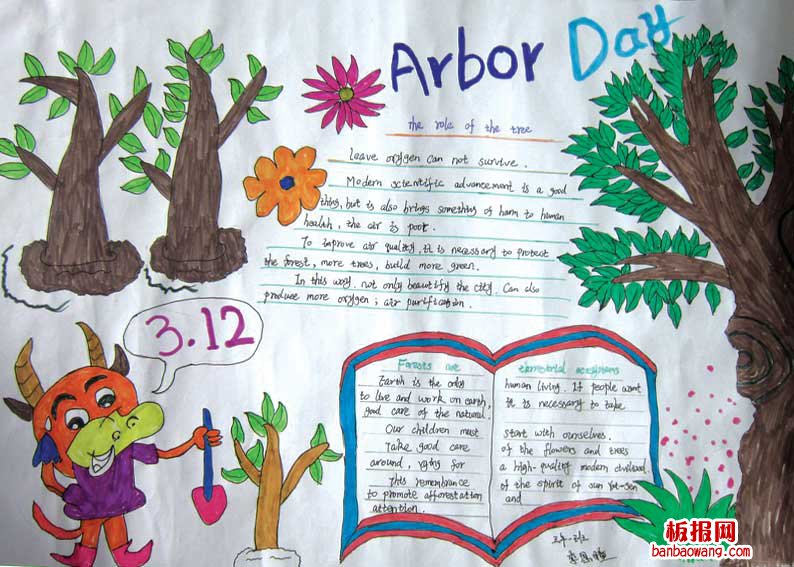 Arbor Day
The role of the tree
Leave oxygen can not survive.
Modern scientific advancement is a good
thing, but is also brings something of harm to human
health, the air is poor.
To improve air quality, it is necessary to protect
the forest, more trees, build more green.
In this way, not only beautify the city. Can also
produce more oxygen; air purification.
3.12
Forests are
Earth is the only
to live and work on earth,
good care of the natural.
Our children must
Take good care
around, for
This remembrance
to promote afforestation
attention.
territorial
human living. If people want
It is necessary to take
start with ourselves.
of the flowers and trees
a high-quality modern
of the spirit of sun Yat-Sen
and
板报网
banbaowang.com